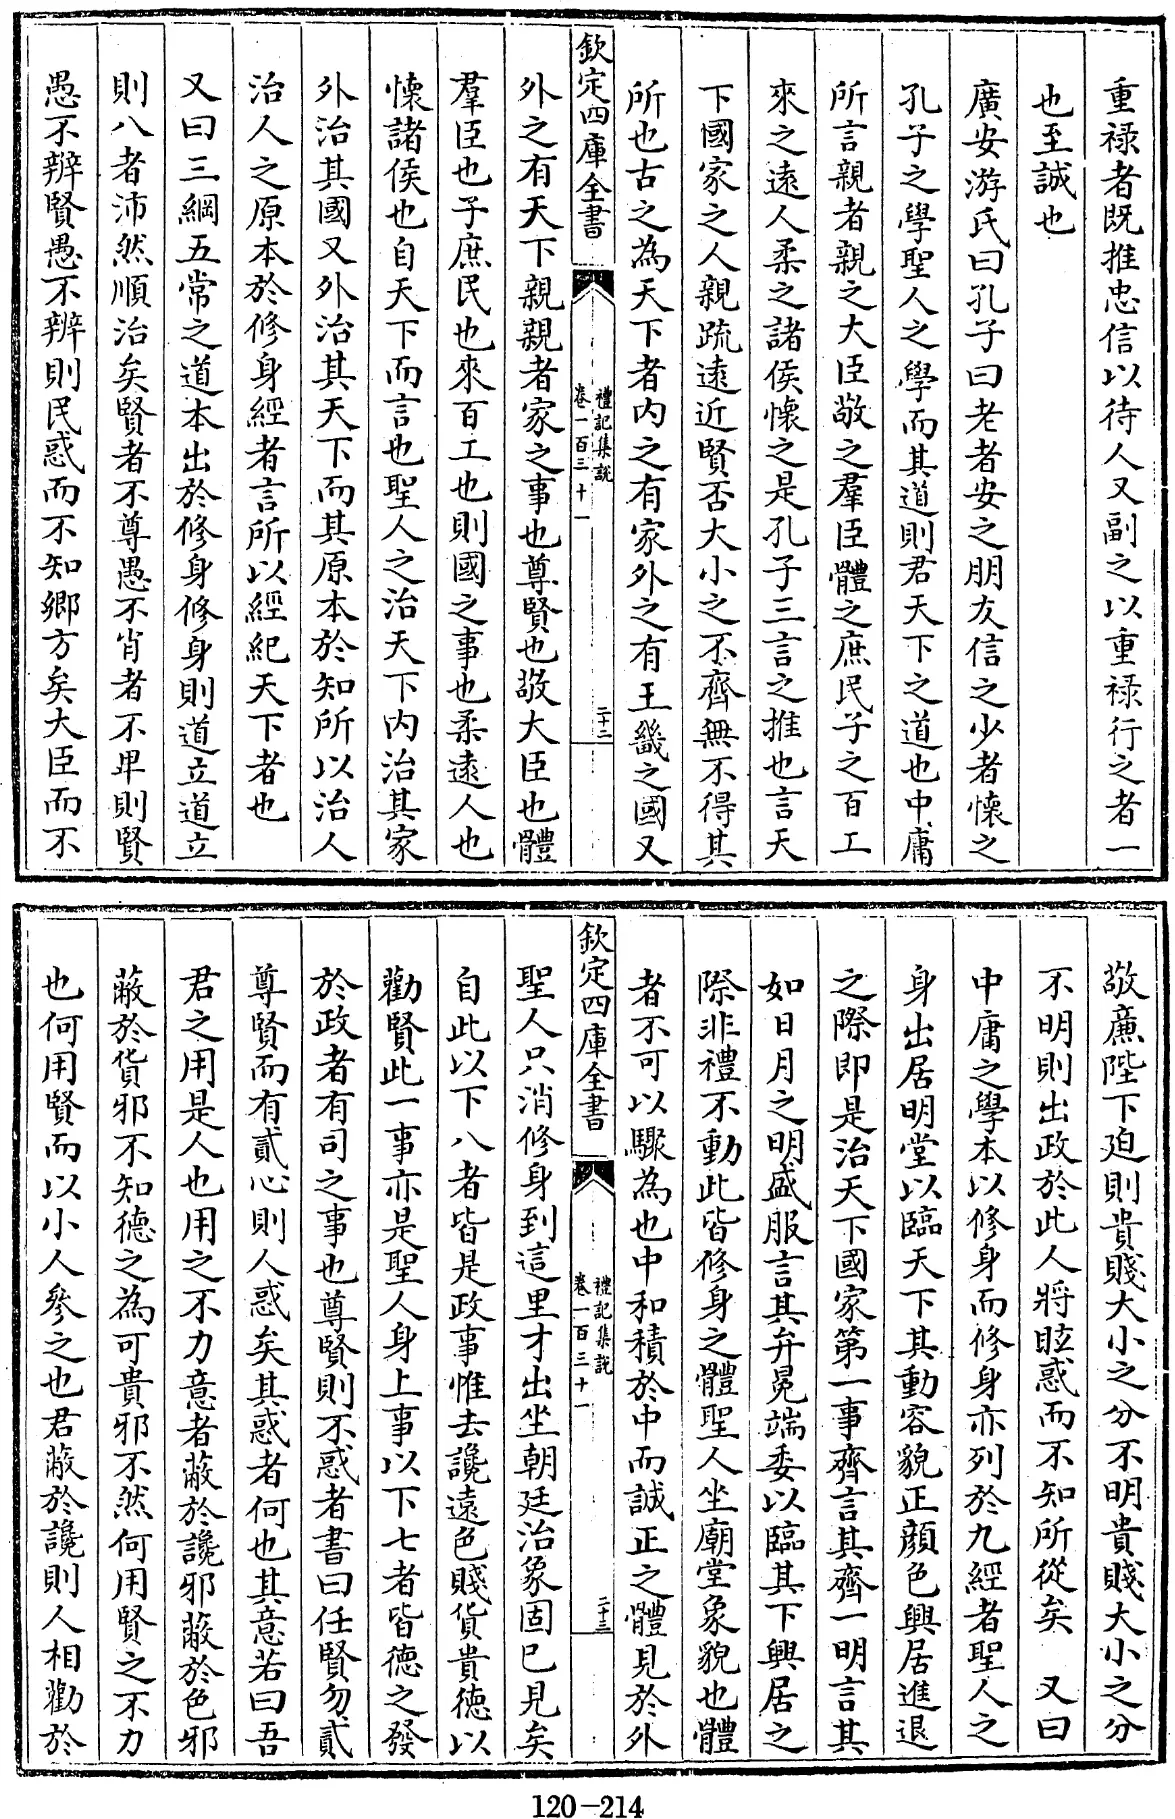 重禄者既推忠信以待人又副之以重禄行之者一
也至誠也
廣安游氏曰孔子曰老者安之朋友信之少者懷之
孔子之學聖人之學而其道則君天下之道也中庸
所言親者親之大臣敬之羣臣體之庶民子之百工
來之遠人柔之諸侯懷之是孔子三言之推也言天
下國家之人親疏遠近賢否大小之不齊無不得其
所也古之為天下者内之有家外之有王畿之國又
欽定四庫全書
禮記集說
卷一百三十一
二十二
外之有天下親親者家之事也尊賢也敬大臣也體
羣臣也子庶民也來百工也則國之事也柔遠人也
懷諸侯也自天下而言也聖人之治天下内治其家
外治其國又外治其天下而其原本於知所以治人
治人之原本於修身經者言所以經紀天下者也
又曰三綱五常之道本出於修身修身則道立道立
則八者沛然順治矣賢者不尊愚不肖者不卑則賢
愚不辨賢愚不辨則民惑而不知鄉方矣大臣而不
敬廉陛下迫則貴賤大小之分不明貴賤大小之分
不明則出政於此人將眩惑而不知所從矣 又曰
中庸之學本以修身而修身亦列於九經者聖人之
身出居明堂以臨天下其動容貌正顔色興居進退
之際即是治天下國家第一事齊言其齊一明言其
如日月之明盛服言其弁冕端委以臨其下興居之
際非禮不動此皆修身之體聖人坐廟堂象貌也體
者不可以驟為也中和積於中而誠正之體見於外
欽定四庫全書
禮記集說
卷一百三十一
二十三
聖人只消修身到這里才出坐朝廷治象固已見矣
自此以下八者皆是政事惟去讒遠色賤貨貴德以
勸賢此一事亦是聖人身上事以下七者皆德之發
於政者有司之事也尊賢則不惑者書曰任賢勿貳
尊賢而有貳心則人惑矣其惑者何也其意若曰吾
君之用是人也用之不力意者蔽於讒邪蔽於色邪
蔽於貨邪不知德之為可貴邪不然何用賢之不力
也何用賢而以小人參之也君蔽於讒則人相勸於
120-214